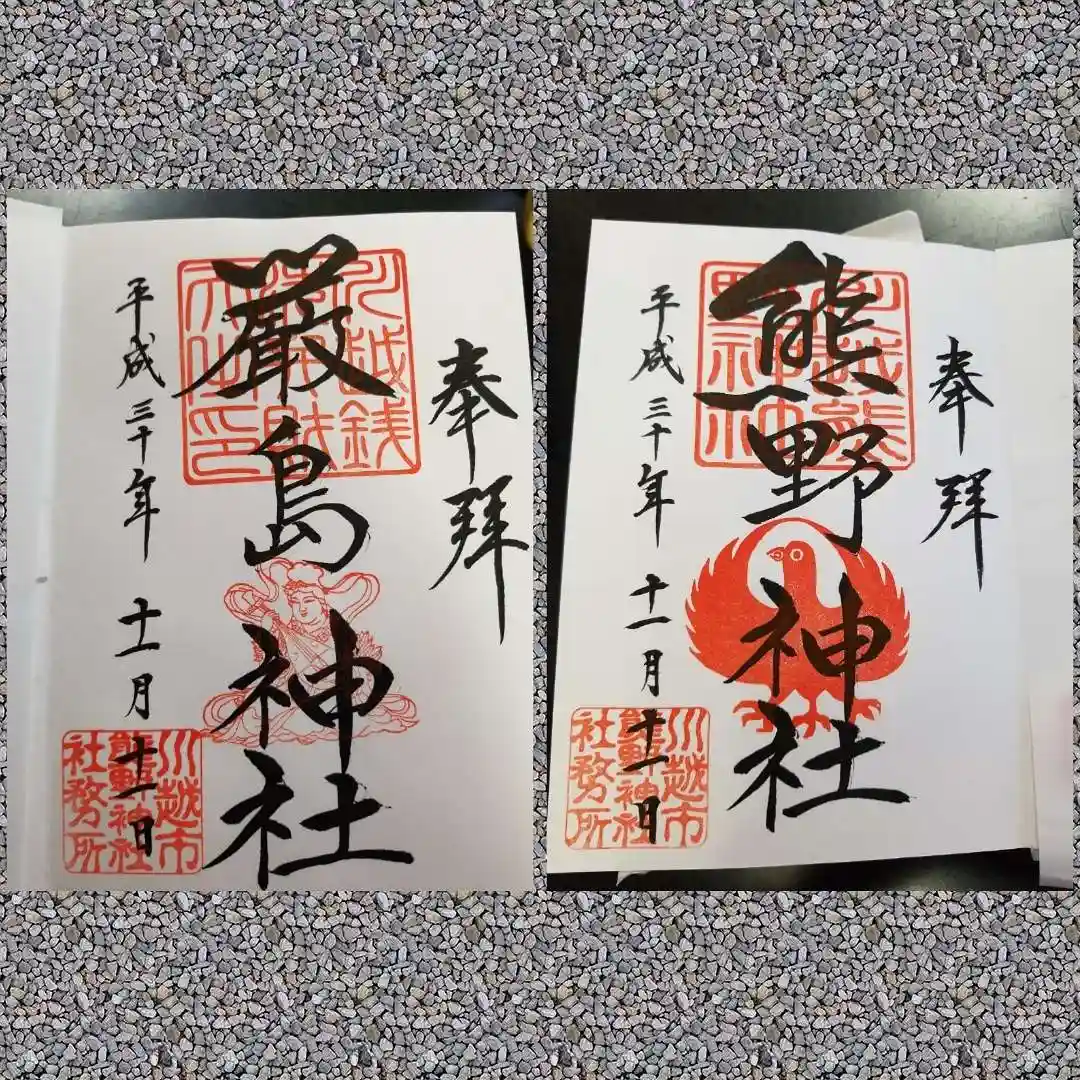 奉拝
厳島神社
平成三十年十一月十一日
川越銭
川越市
熊野神社
社務所
奉拝
熊野神社
平成三十年十一月十一日
川越熊
野神社
川越市
熊野神社
社務所